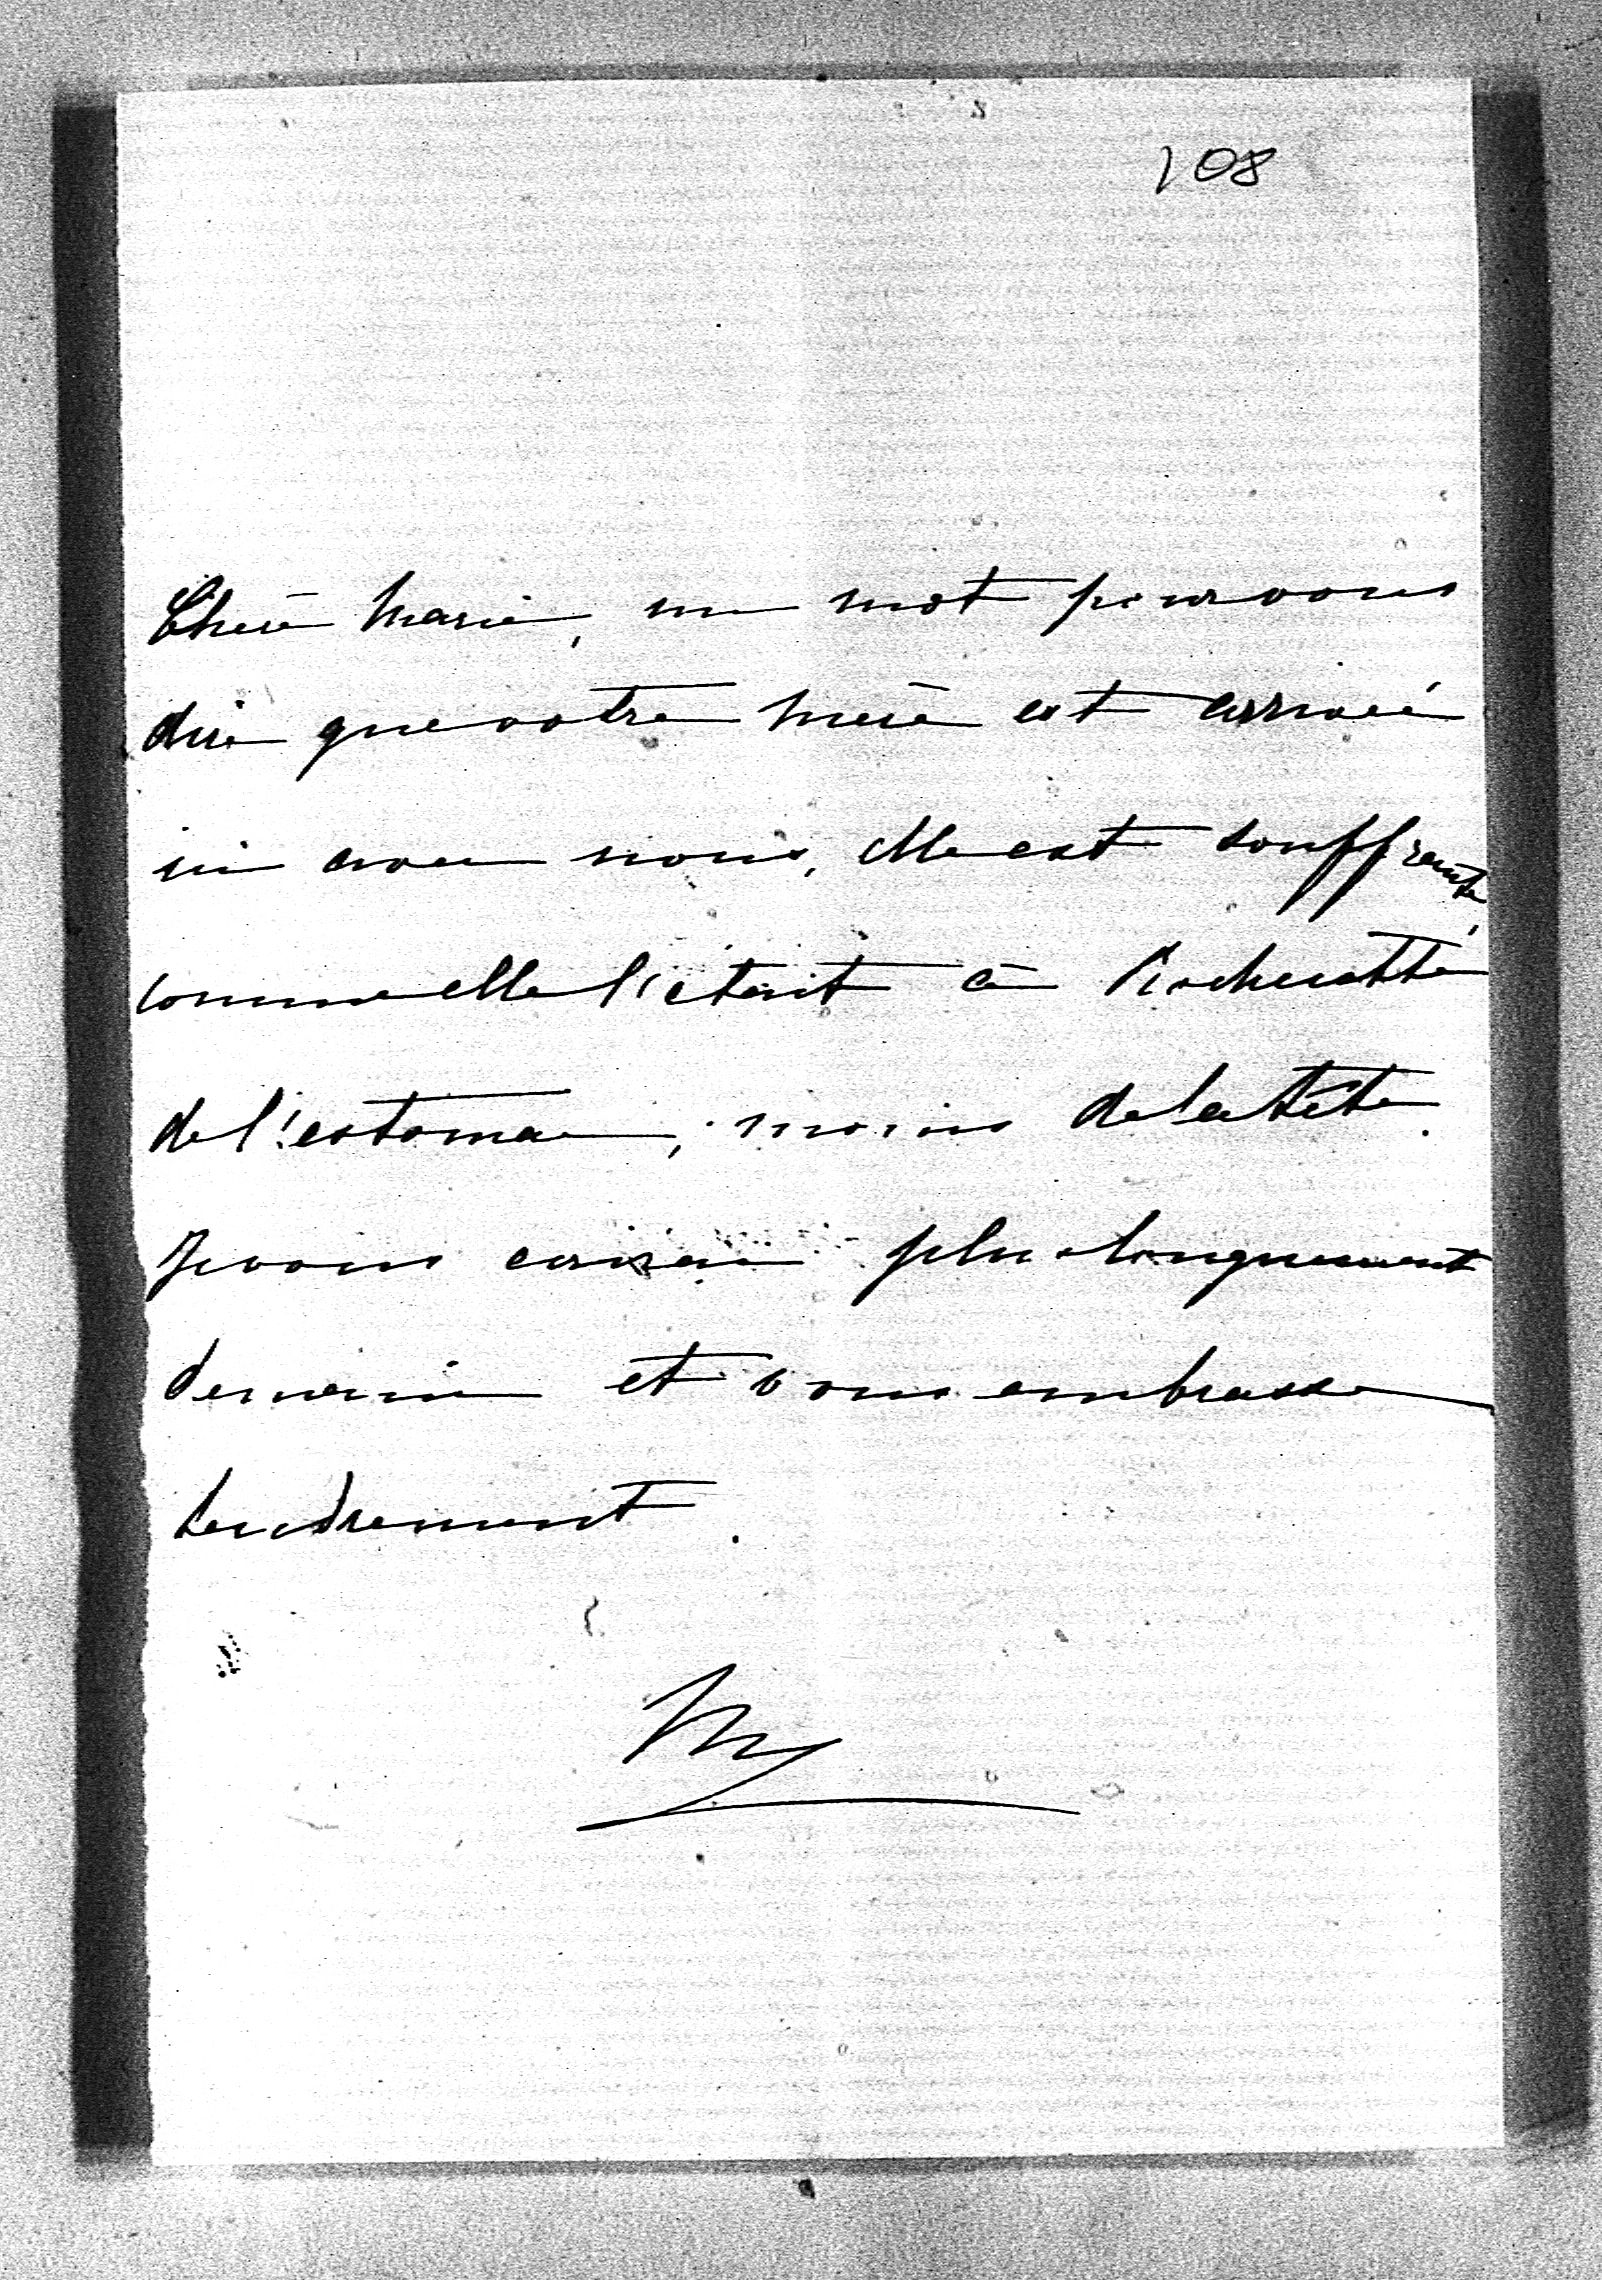 108
Chère Marie, un mot pour vous
dire que votre mère est arrivée
ici avec nous, elle est souffrante,
comme elle l'était à Rochecotte
de l'estomac, moins de la tête.
Je vous écrirai plus longuement
demain et vous embrasse
tendrement.
M